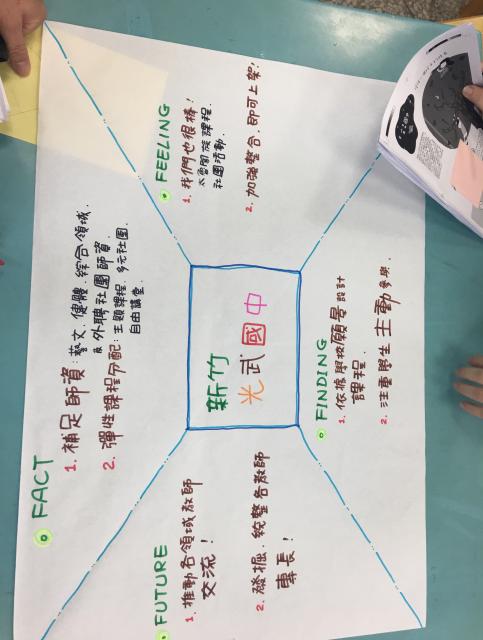 FACT
1. 補足師資:藝文、健體、綜合領域.
外聘社團師資.
2. 彈性課程分配:主題課程、多元社團.
自由講堂.
FEELING
1. 我們也很棒!
太魯閣族課程.
社團活動.
2. 加強整合,即可上架!
新竹
光武國中
FUTURE
1. 推動各領域教師
交流!
2. 發掘、統整各教師
專長!
FINDING
1. 依據學校願景設計
課程.
2. 注重學生主動參與.